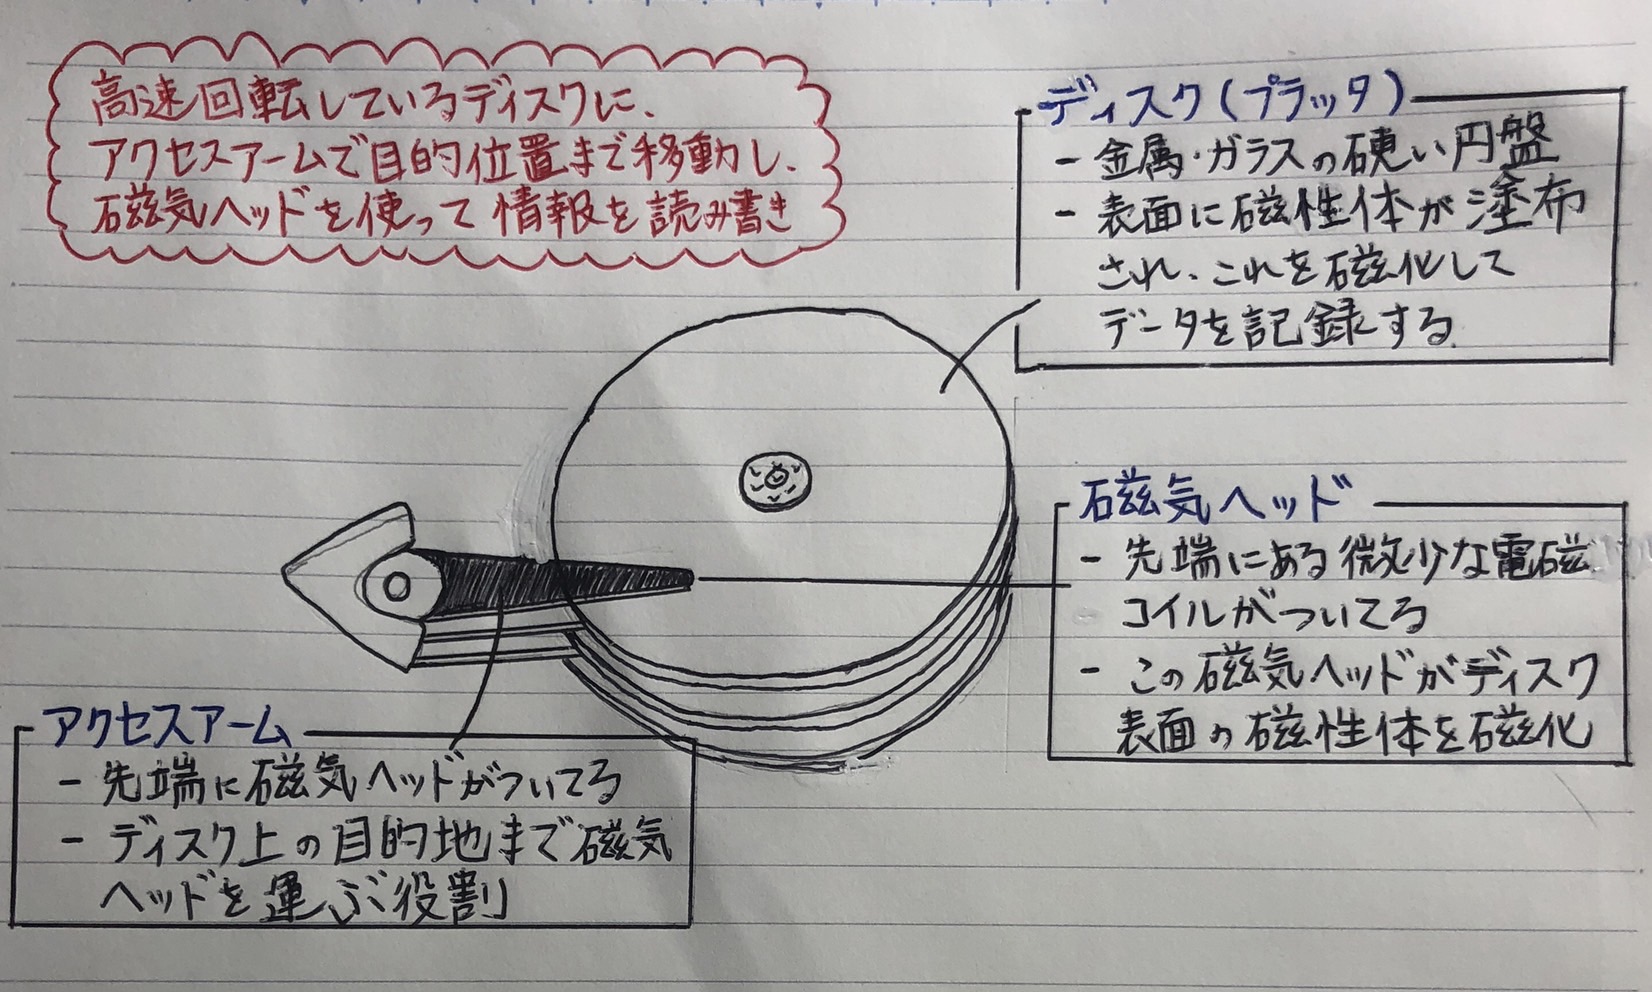 高速回転しているディスクに、
アクセスアームで目的位置まで移動し、
磁気ヘッドを使って情報を読み書き
ディスク(プラッタ)
- 金属・ガラスの硬い円盤
- 表面に磁性体が塗布
され、これを磁化して
データを記録する
磁気ヘッド
- 先端にある微少な電磁
コイルがついてる
- この磁気ヘッドがディスク
表面の磁性体を磁化
アクセスアーム
- 先端に磁気ヘッドがついてる
- ディスク上の目的地まで磁気
ヘッドを運ぶ役割